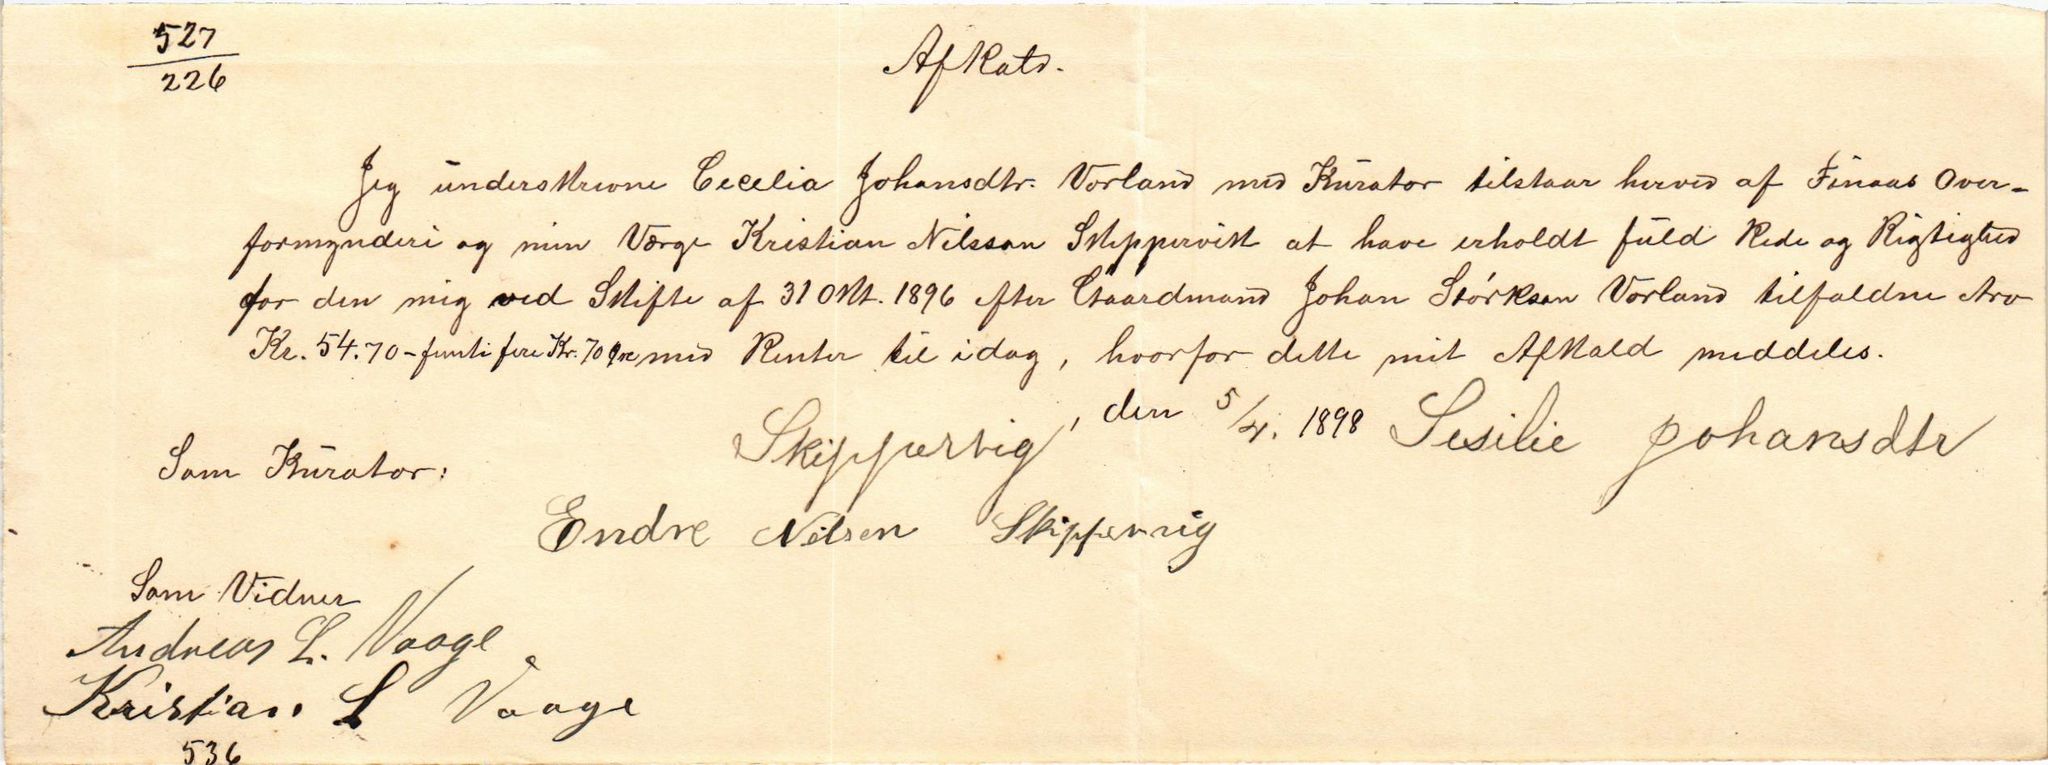 527
226
Afkald.
Jeg underskrevne Cecelia Johansdtr. Vorland med Kurator tilstaar herved af Finaas Over-
formynderi og min Værge Kristian Nilsson Skippervik at have erholdt fuld Rede og Rigtighed
for den mig ved Skifte af 31 Okt. 1896 efter Gaardmand Johan Størkson Vorland tilfaldne Arv
Kr. 54.70 - femti fire Kr. 70 Øre med Renter til idag, hvorfor dette mit Afkald meddeles.
Skippervig, den 5/4. 1898 Sesilie Johansdtr
Som Kurator:
Endre Nilsen Skippervig
Som Vidner
Andreas L. Vaage
Kristian L Vaage
536